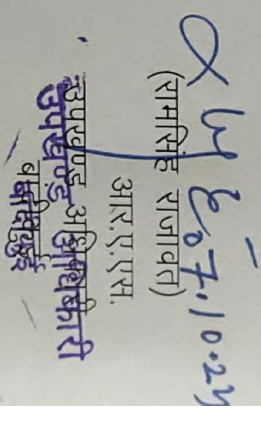 07.10.24
(रामसिंह राजावत)
आर.ए.एस.
उपखण्ड अधिकारी
उपखण्ड अधिकारी
बांदीकुई
बांदीकुई